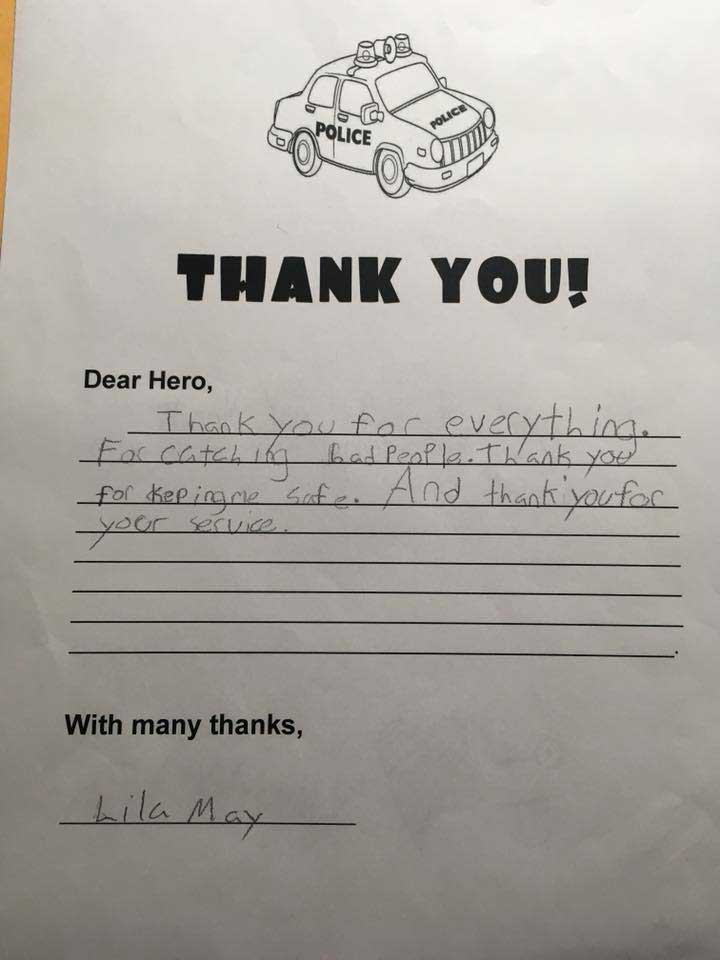 POLICE
POLICE
THANK YOU!
Dear Hero,
Thank you for everything.
For catching bad People. Thank you
for keping me safe. And thank you for
your service.
With many thanks,
Lila May